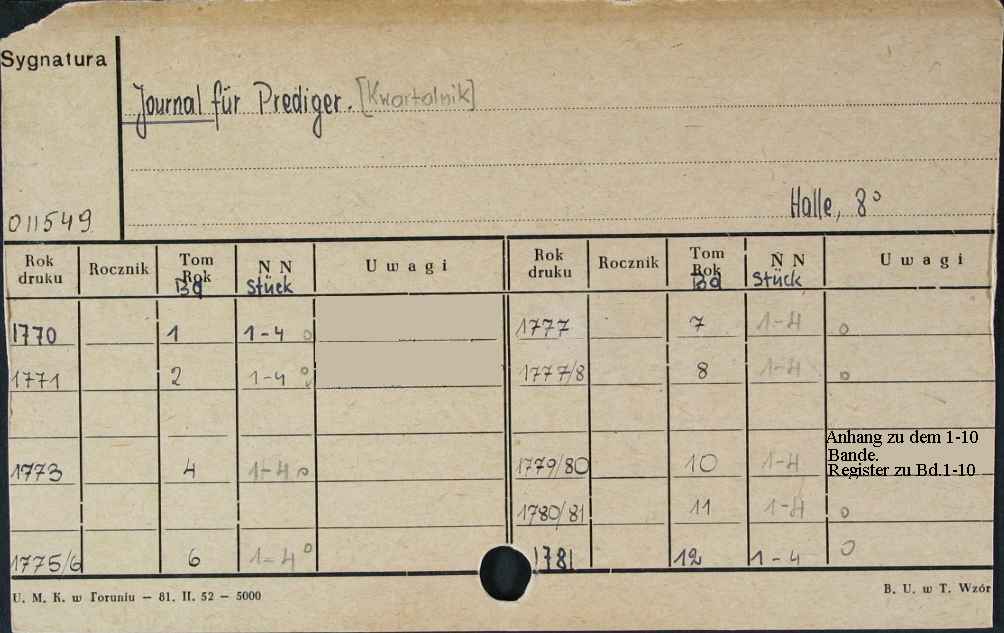 Sygnatura
Journal für Prediger. [Kwartalnik]
011549
Halle, 8°
Rok druku Rocznik Tom Rok Bd N N Stück Uwagi Rok druku Rocznik Tom Rok Bd N N Stück Uwagi
1770 1 1-4 o 1777 7 1-4 o
1771 2 1-4 o 1777/8 8 1-4 o
1773 4 1-4 o 1779/80 10 1-4 Anhang zu dem 1-10
Bande.
Register zu Bd.1-10
1780/81 11 1-4 o
1775/6 6 1-4 o 1781 12 1-4 o
U. M. K. w Toruniu — 81. II. 52 — 5000
B. U. w T. Wzór